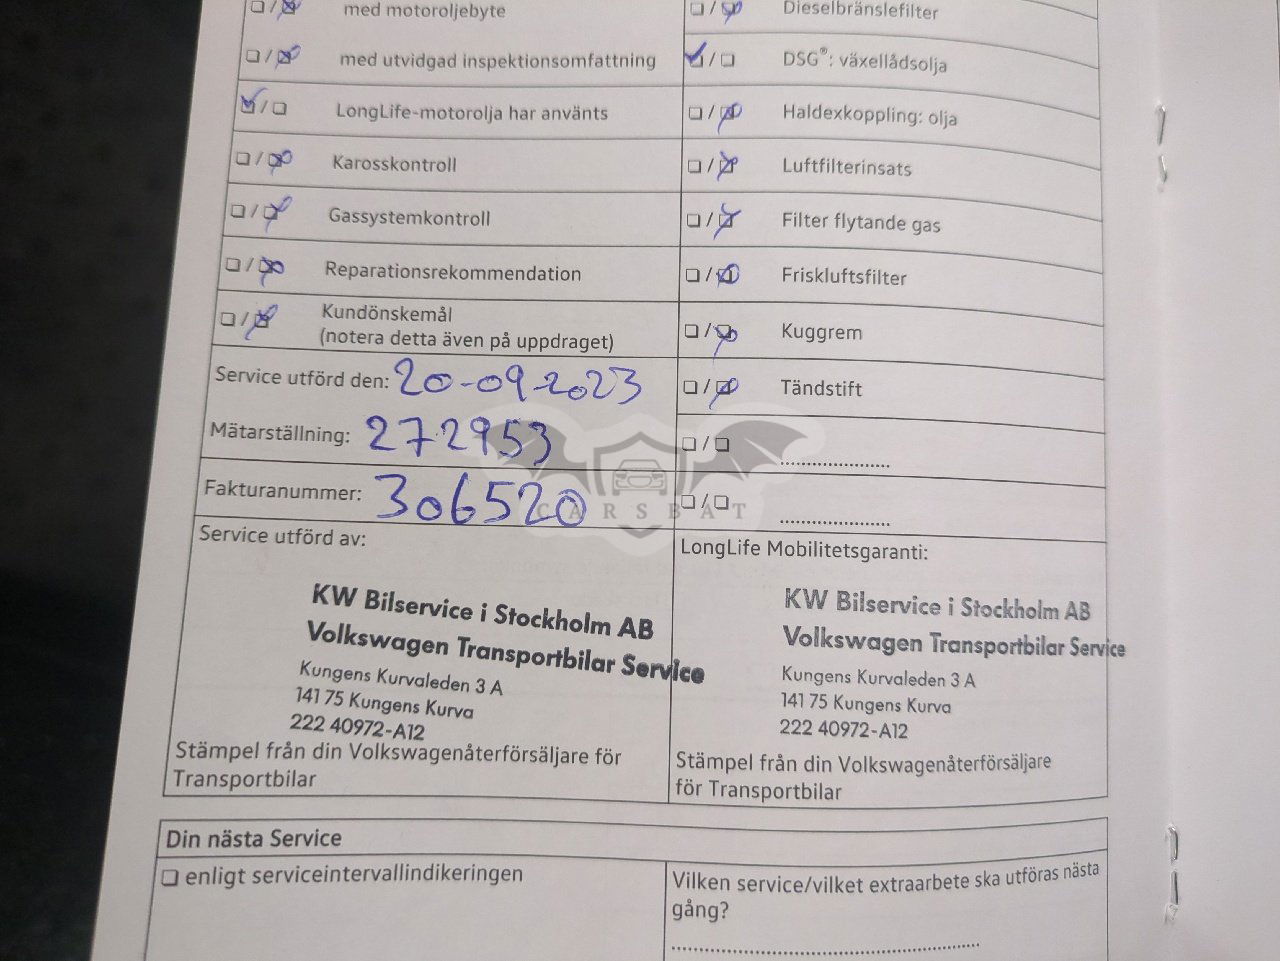 med motoroljebyte
med utvidgad inspektionsomfattning
LongLife-motorolja har använts
Karosskontroll
Gassystemkontroll
Reparationsrekommendation
Kundönskemål
(notera detta även på uppdraget)
Service utförd den: 20-09-2023
Mätarställning: 272953
Fakturanummer: 306520
Dieselbränslefilter
DSG®: växellådsolja
Haldexkoppling: olja
Luftfilterinsats
Filter flytande gas
Friskluftsfilter
Kuggrem
Tändstift
CARSBAT
Service utförd av:
KW Bilservice i Stockholm AB
Volkswagen Transportbilar Service
Kungens Kurvaleden 3 A
141 75 Kungens Kurva
222 40972-A12
Stämpel från din Volkswagenåterförsäljare för
Transportbilar
LongLife Mobilitetsgaranti:
KW Bilservice i Stockholm AB
Volkswagen Transportbilar Service
Kungens Kurvaleden 3 A
141 75 Kungens Kurva
222 40972-A12
Stämpel från din Volkswagenåterförsäljare
för Transportbilar
Din nästa Service
enligt serviceintervallindikeringen
Vilken service/vilket extraarbete ska utföras nästa
gång?